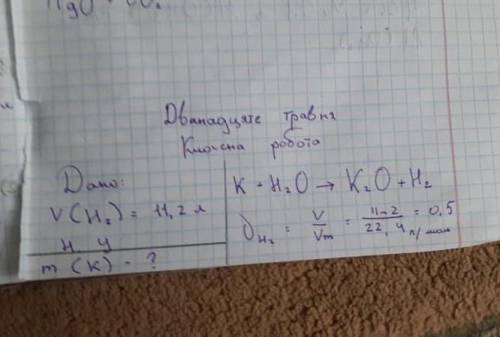 Дванадцяте травня
Класна робота
Дано:
V(H₂) = 11,2 л
Н У
m (K) - ?
K + H₂O → K₂O + H₂
ν H₂ = V/Vm = 11,2/22,4 л/моль = 0,5